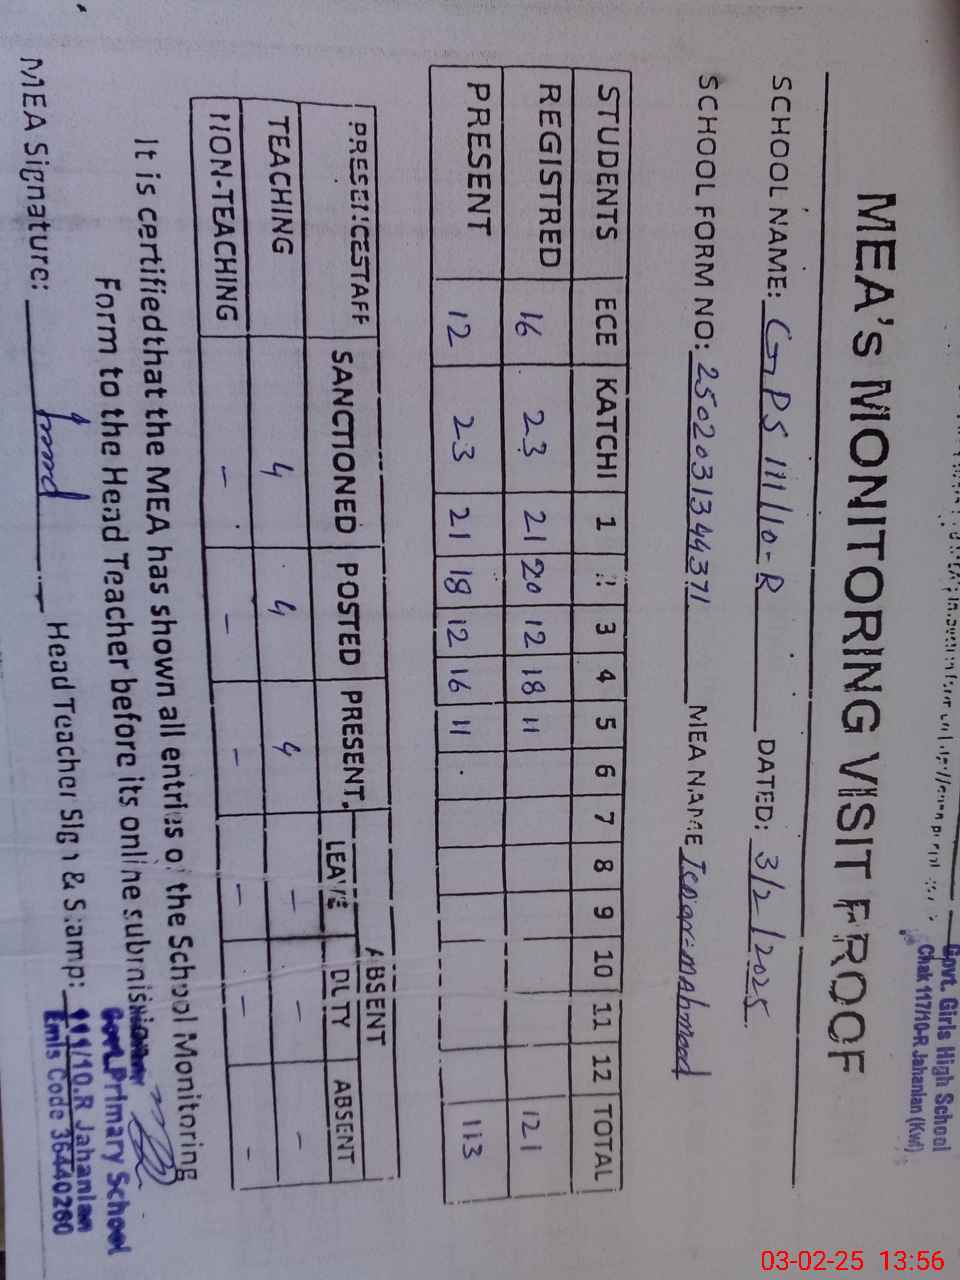 Govt. Girls High School
Chak 117/10-R Jahanian (Kwl)
MEA's MONITORING VISIT PROOF
SCHOOL NAME: GPS 111/10-R DATED: 3/2/2025
SCHOOL FORM NO: 2502031344371 MEA NAME mahmood
STUDENTS ECE KATCHI 1 2 3 4 5 6 7 8 9 10 11 12 TOTAL
REGISTRED 16 23 21 20 12 18 11 121
PRESENT 12 23 21 18 12 16 11 113
PRESENCESTAFF SANCTIONED POSTED PRESENT ABSENT
LEAVE DUTY ABSENT
TEACHING 4 4 4 - - -
NON-TEACHING - - - - - -
It is certifiedthat the MEA has shown all entries of the School Monitoring
Form to the Head Teacher before its online submission
MEA Signature: Head Teacher Sign & Stamp:
Govt. Primary School
111/10.R Jahanian
Emis Code 36440260
03-02-25 13:56